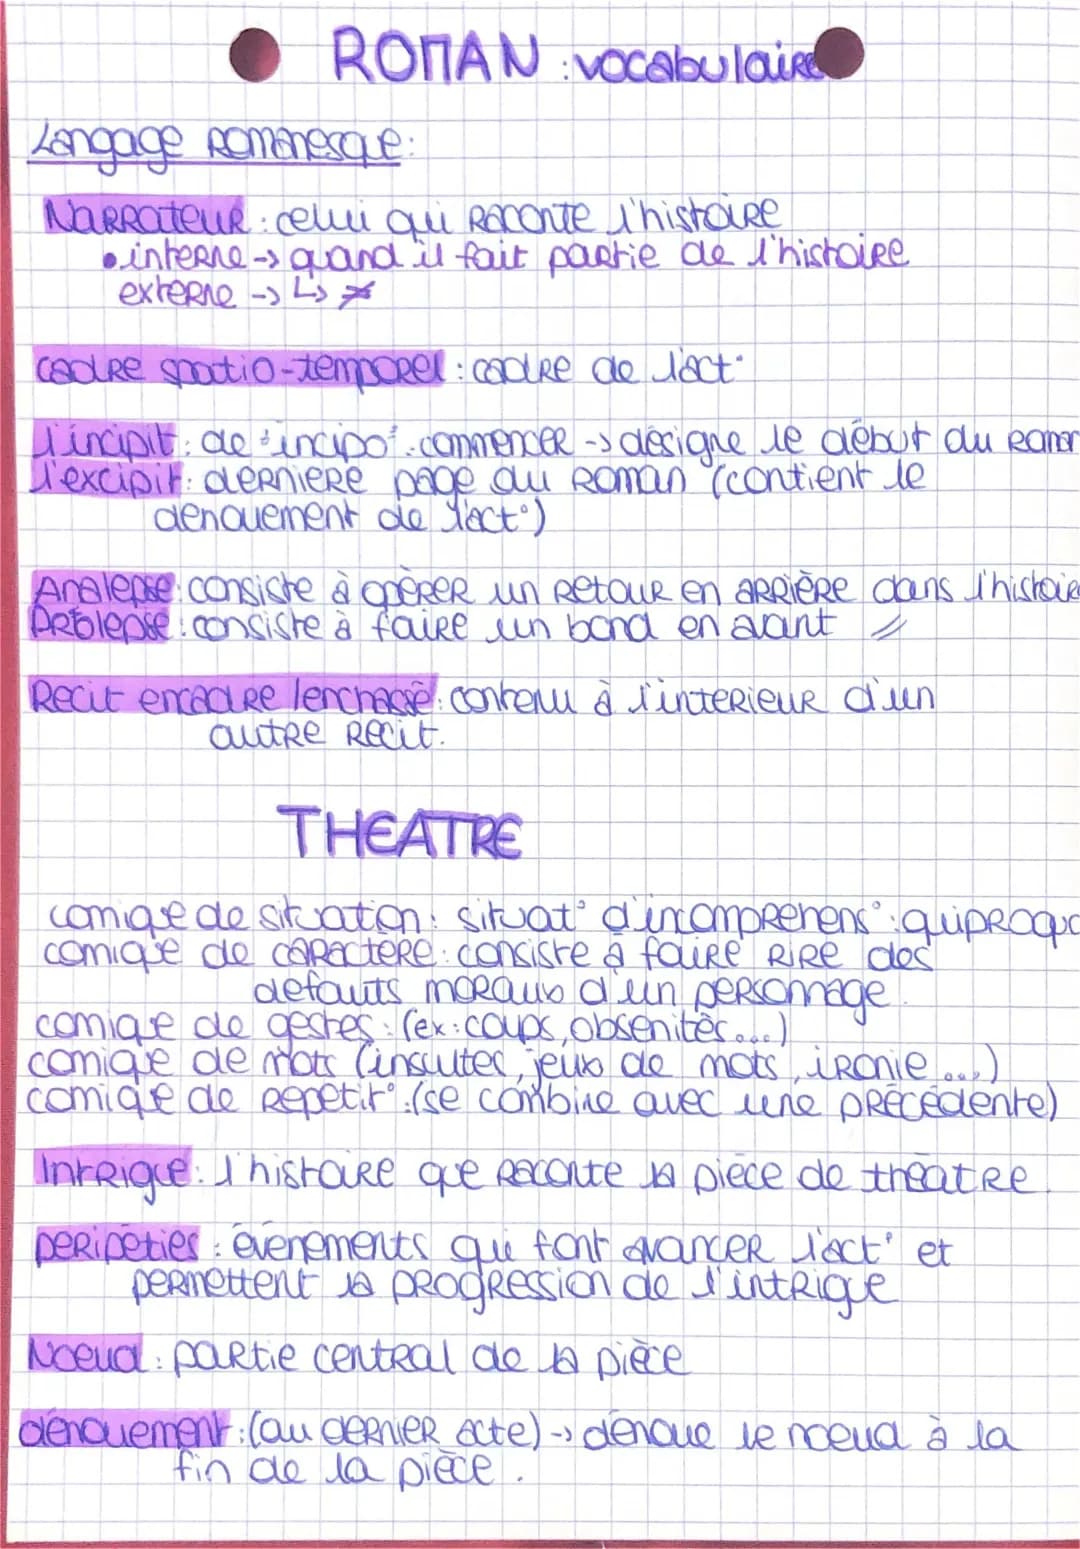 ROMAN : vocabulaire
Langage Romanesque :
Narrateur : celui qui raconte l'histoire
• interne -> quand il fait partie de l'histoire
externe -> ↳ ✗
cadre spatio-temporel : cadre de l'act°
l'incipit : de "incipo" : commencer -> désigne le début du Roman
l'excipit : derniere page du Roman (contient le
denouement de l'act°)
Analepse : consiste à opèrer un retour en arrière dans l'histoire
Prolepse : consiste à faire un bond en avant //
Recit encadre / enchassé : contenu à l'interieur d'un
autre recit.
THEATRE
comique de situation : situat° d'incomprehens° : quiproquo
comique de caractere : consiste à faire rire des
defauts moraux d'un personnage.
comique de gestes : (ex : coups, obsenités...)
comique de mots (insultes, jeux de mots, ironie...)
comique de repetit° : (se combine avec une précédente)
Intrigue : l'histoire que raconte la pièce de théatre.
peripéties : évenements qui font avancer l'act° et
permettent la progression de l'intrigue
Noeud : partie central de la pièce
dénouement : (au dernier acte) -> dénoue le noeud à la
fin de la pièce.